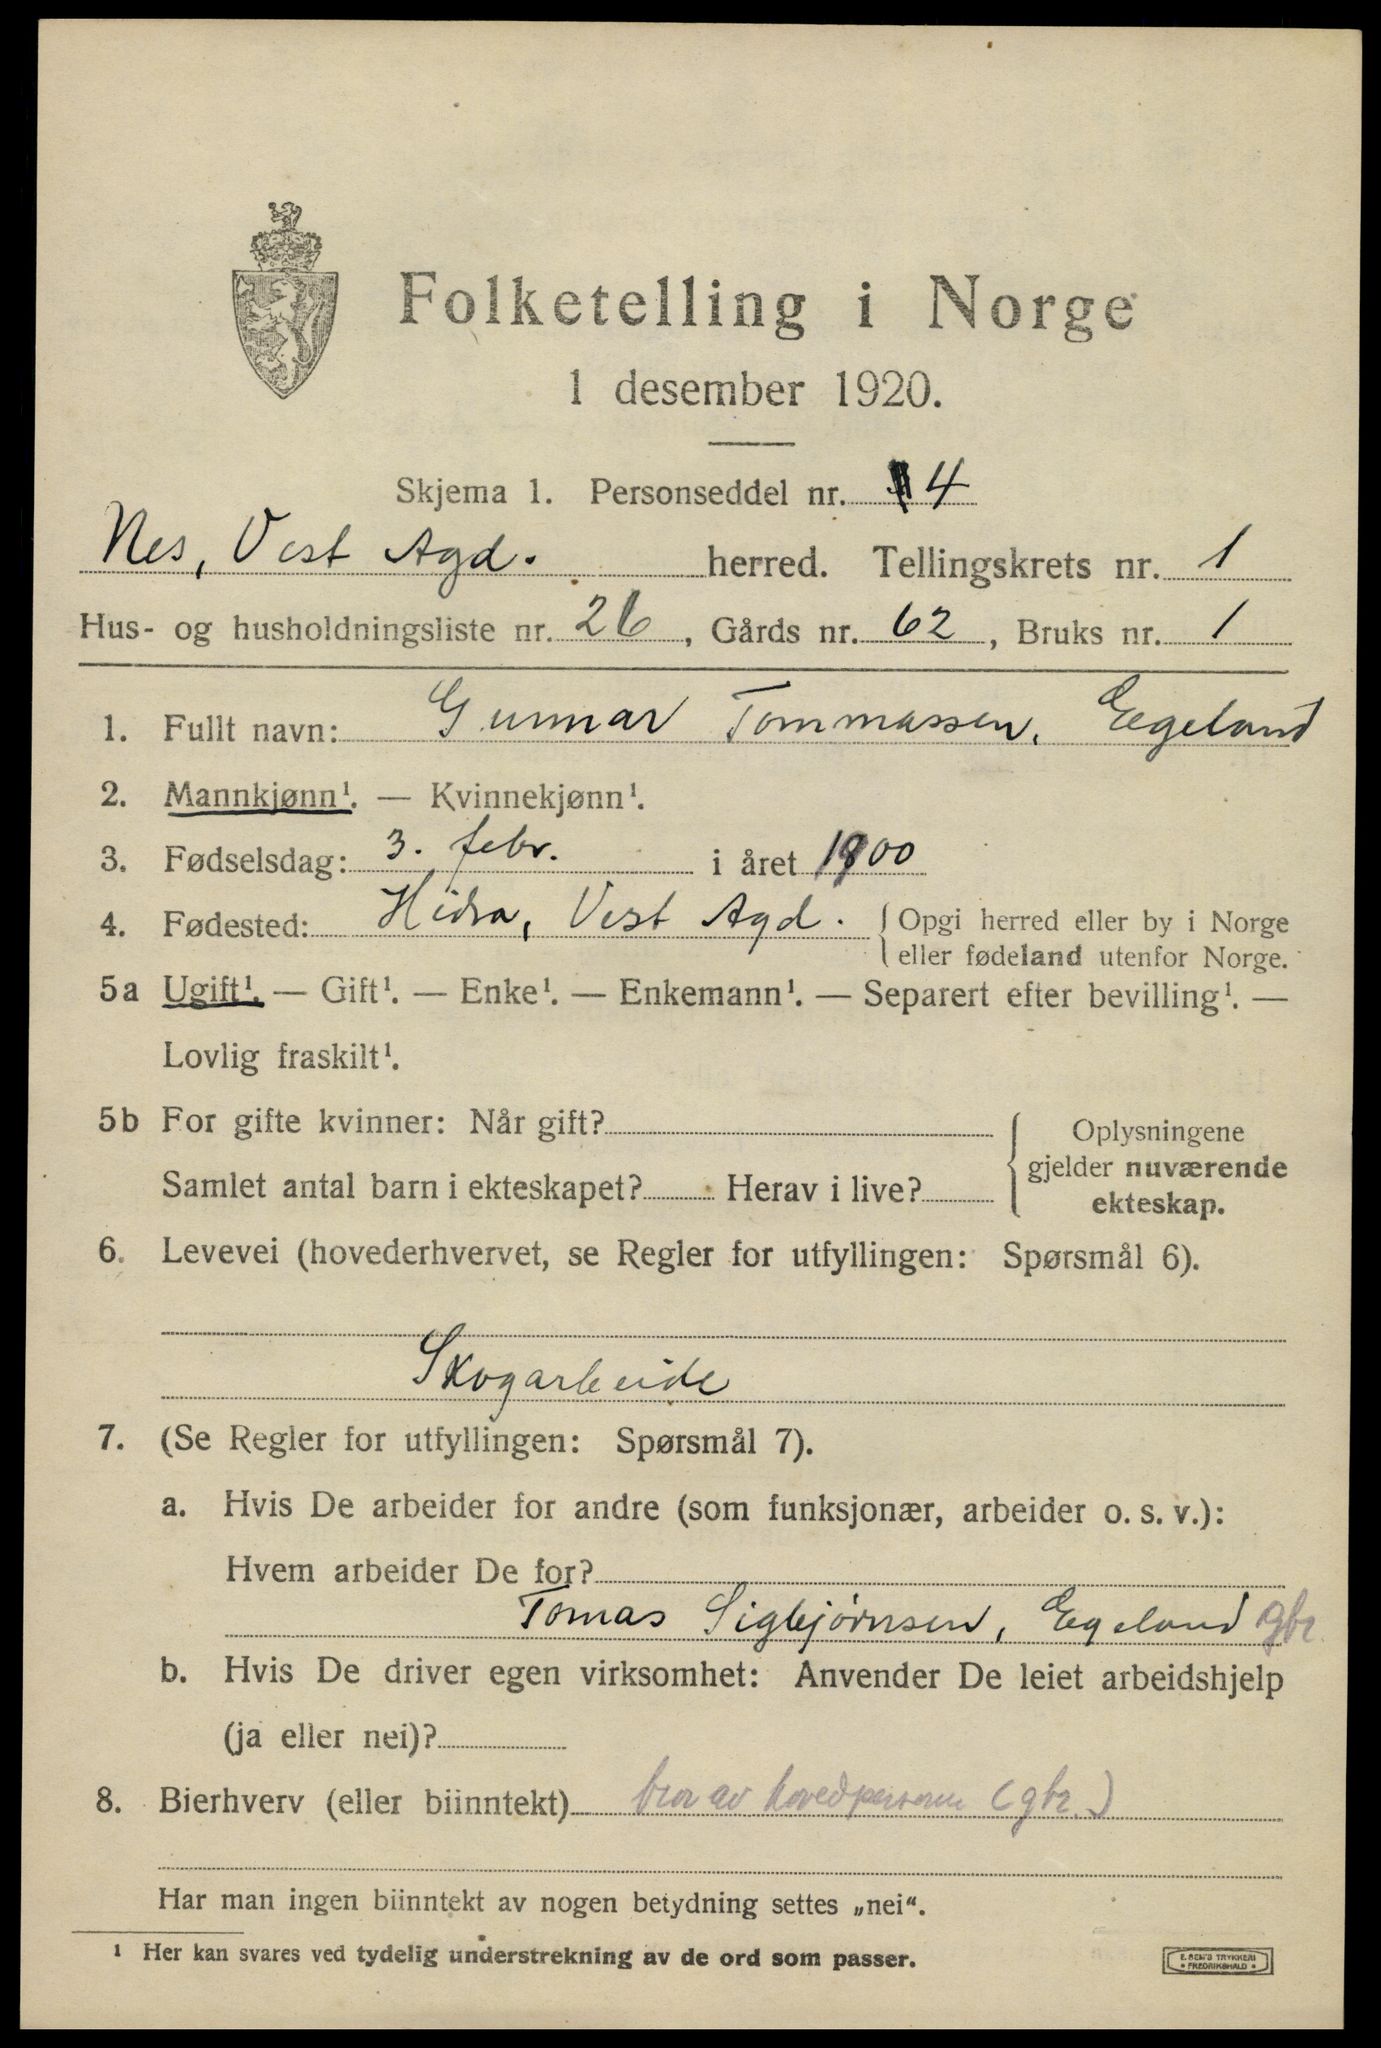 Folketelling i Norge
1 desember 1920.
Skjema 1. Personseddel nr. 4
Nes, Vest Agd. herred. Tellingskrets nr. 1
Hus- og husholdningsliste nr. 26, Gårds nr. 62, Bruks nr. 1
1. Fullt navn: Gunnar Tommassen, Egeland
2. Mannkjønn¹. — Kvinnekjønn¹.
3. Fødselsdag: 3. febr. i året 1900
4. Fødested: Hidra, Vest Agd. { Opgi herred eller by i Norge
eller fødeland utenfor Norge.
5a Ugift¹. — Gift¹. — Enke¹. — Enkemann¹. — Separert efter bevilling¹. —
Lovlig fraskilt¹.
5b For gifte kvinner: Når gift? { Oplysningene
gjelder nuværende
Samlet antal barn i ekteskapet? Herav i live?
ekteskap.
6. Levevei (hovederhvervet, se Regler for utfyllingen: Spørsmål 6).
Skogarbeide
7. (Se Regler for utfyllingen: Spørsmål 7).
a. Hvis De arbeider for andre (som funksjonær, arbeider o. s. v.):
Hvem arbeider De for?
Tomas Sigbjørnsen, Egeland gbr.
b. Hvis De driver egen virksomhet: Anvender De leiet arbeidshjelp
(ja eller nei)?
8. Bierhverv (eller biinntekt) bror av hovedperson (gbr.)
Har man ingen biinntekt av nogen betydning settes „nei“.
¹ Her kan svares ved tydelig understrekning av de ord som passer.
E. SEM'S TRYKKERI
• FREDRIKSHALD •